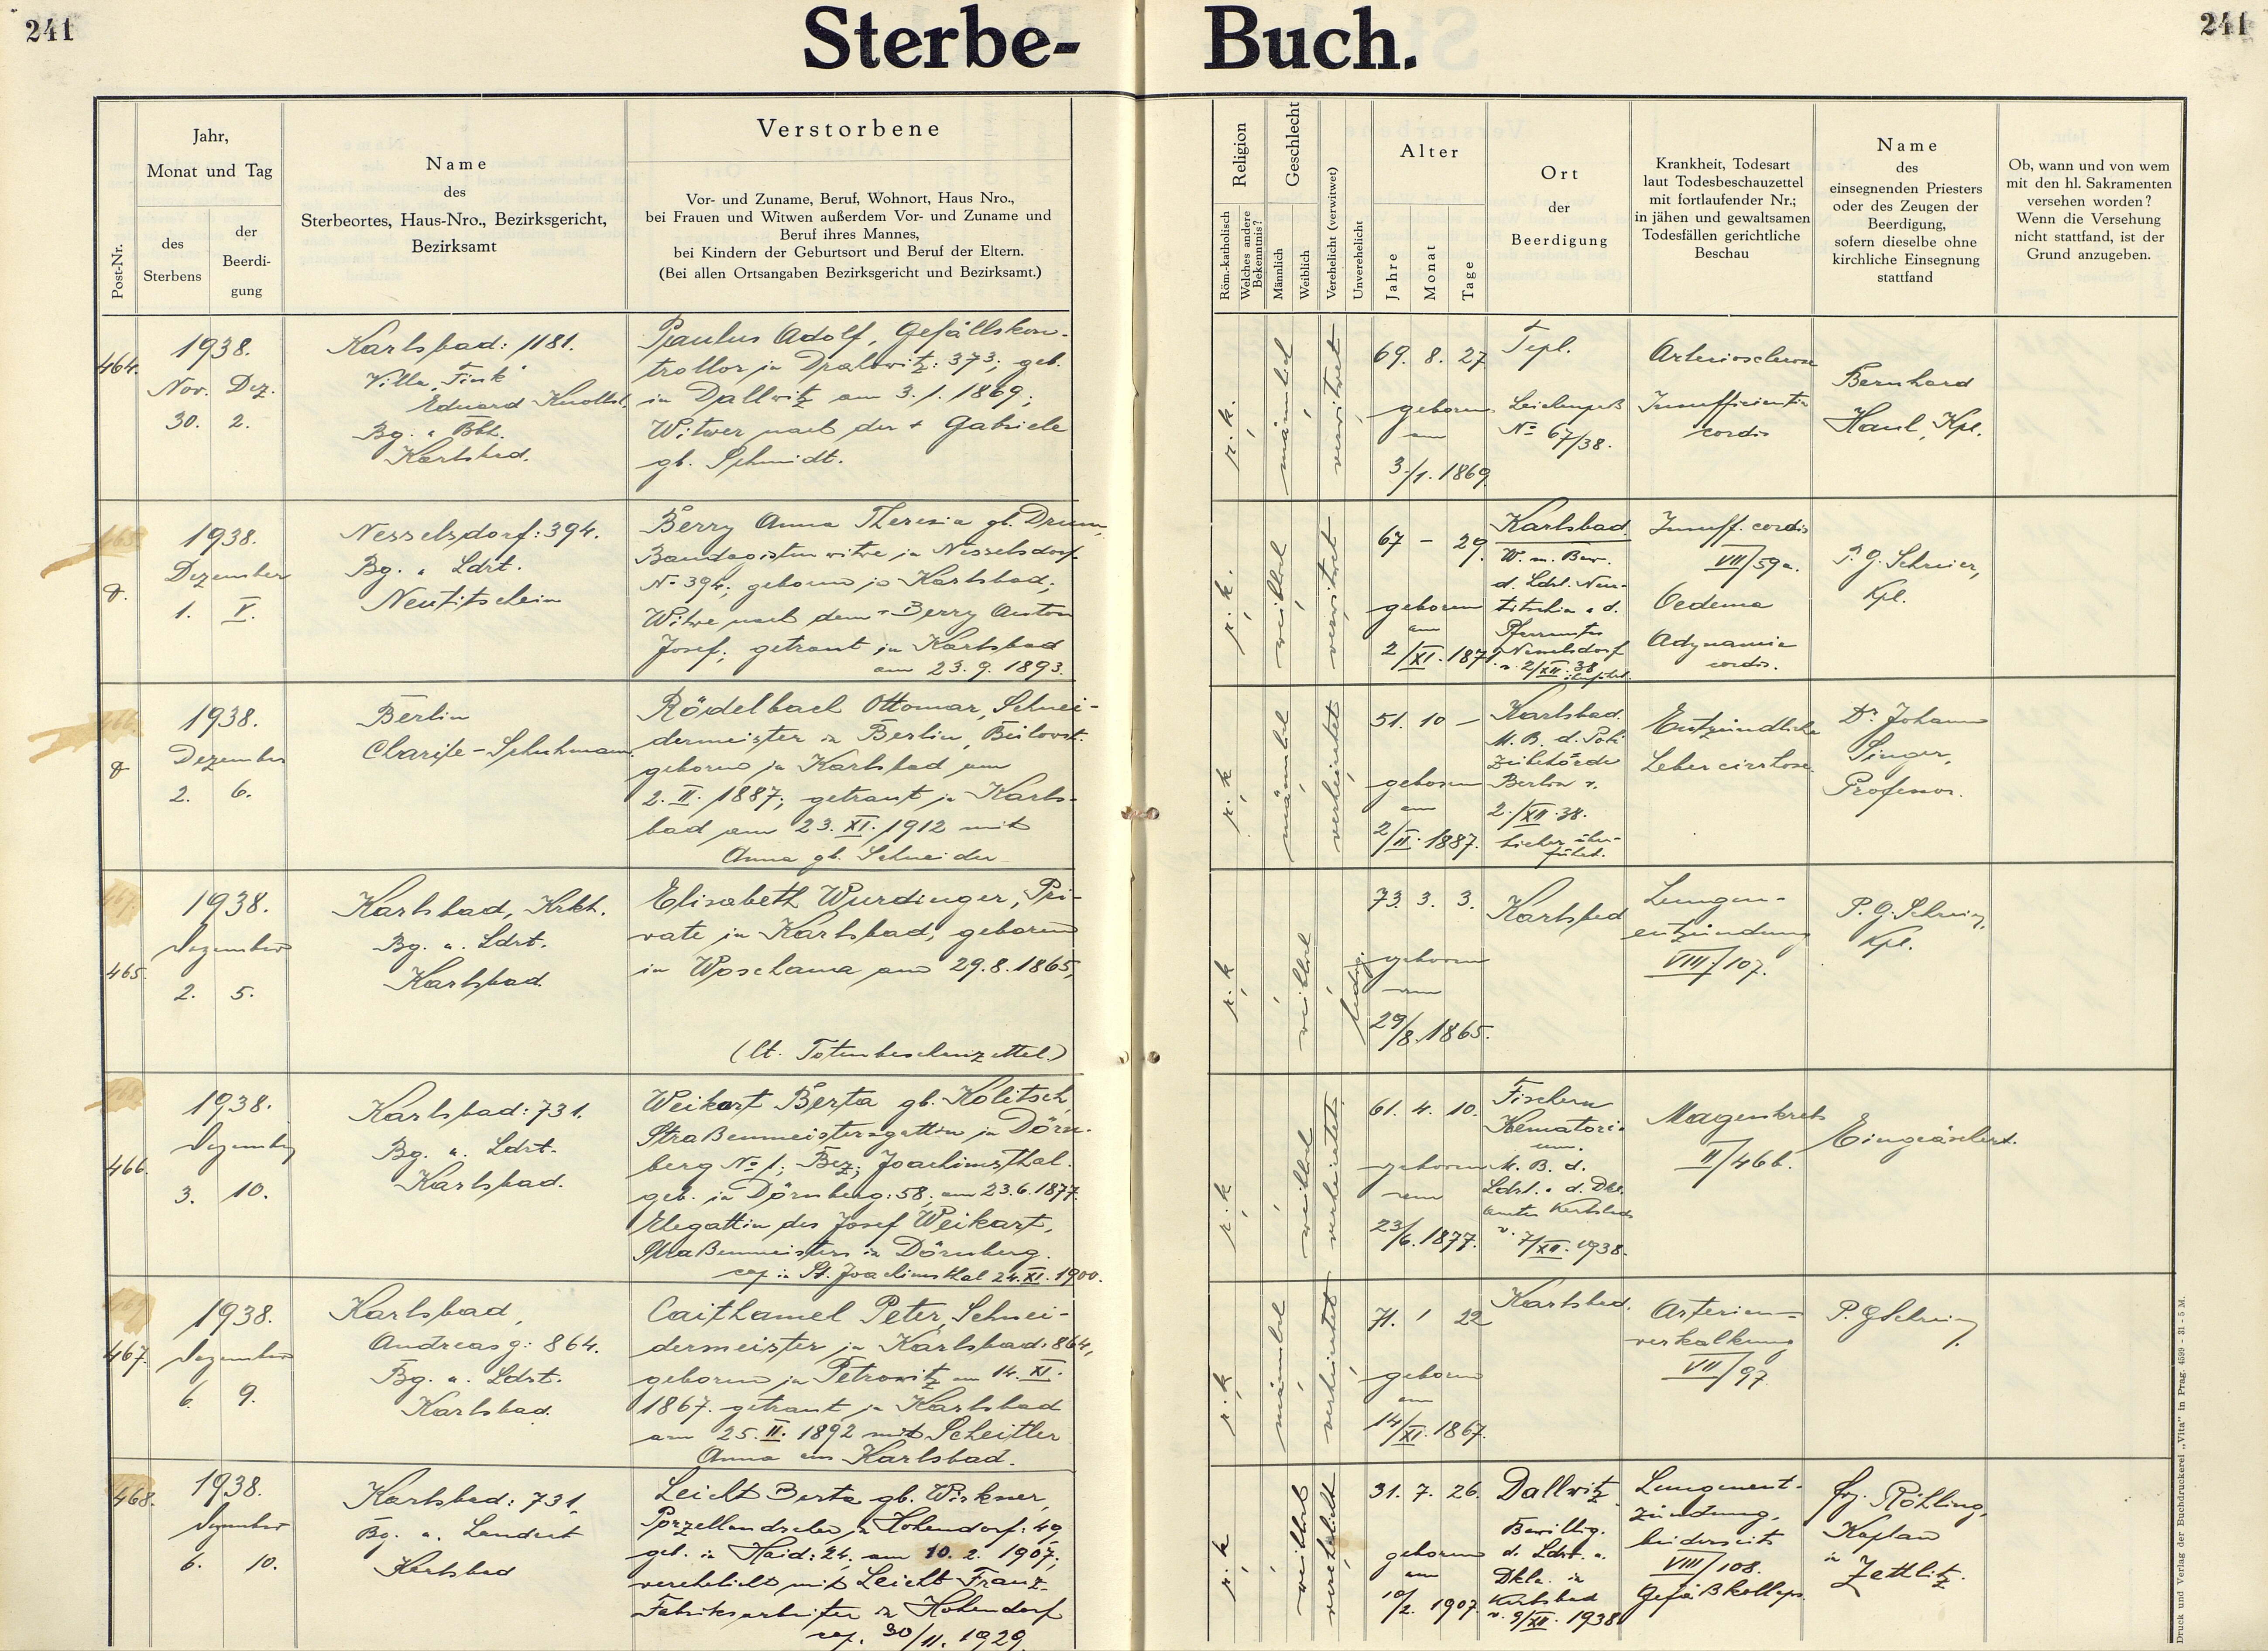 241
Sterbe-
Buch.
241
Post-Nr.
Jahr,
Monat und Tag
des
Sterbens
der
Beerdi-
gung
Name
des
Sterbeortes, Haus-Nro., Bezirksgericht,
Bezirksamt
Verstorbene
Vor- und Zuname, Beruf, Wohnort, Haus Nro.,
bei Frauen und Witwen außerdem Vor- und Zuname und
Beruf ihres Mannes,
bei Kindern der Geburtsort und Beruf der Eltern.
(Bei allen Ortsangaben Bezirksgericht und Bezirksamt.)
Religion
Röm.-katholisch
Welches andere
Bekenntnis?
Geschlecht
Männlich
Weiblich
Verehelicht (verwitwet)
Unverehelicht
Alter
Jahre
Monat
Tage
Ort
der
Beerdigung
Krankheit, Todesart
laut Todesbeschauzettel
mit fortlaufender Nr.;
in jähen und gewaltsamen
Todesfällen gerichtliche
Beschau
Name
des
einsegnenden Priesters
oder des Zeugen der
Beerdigung,
sofern dieselbe ohne
kirchliche Einsegnung
stattfand
Ob, wann und von wem
mit den hl. Sakramenten
versehen worden?
Wenn die Versehung
nicht stattfand, ist der
Grund anzugeben.
464.
1938.
Nov. Dez.
30. 2.
Karlsbad: 1181.
Villa "Fink"
Eduard
Bg.
Karlsbad.
Paulus Adolf, Gefällskon-
trollor in : 373; geb.
in Dallwitz am 3. 1. 1869;
Witwer nach der + Gabriele
gb. Schmidt.
r. k.
männlich
verwitwet
69. 8. 27
geboren
am
3./1. 1869.
Tepl.
Leichenpaß
No 67/38.
Insufficientia
cordis
Bernhard
Kpl.
1938.
Dezember
1. V.
Nesselsdorf: 394.
Bg. u. Ldrt.
Neutitschein
Berry Anna Theresia gb.
Bandagistenwitwe in Nesselsdorf
No 394; geboren in Karlsbad;
Witwe nach dem + Berry Anton
Josef; getraut in Karlsbad
am 23. 9. 1893.
r. k.
weiblich
verwitwet
67 – 29.
geboren
am
2/XI. 1871.
Karlsbad.
W. m. Bew.
d. Ldrt. Neu-
titschein u. d.
Pfarramtes
Nesselsdorf
v. 2/XII. 38
Insuff. cordis
VII/59a.
Oedema
Adynamia
cordis.
P. G. Schreier,
Kpl.
1938.
Dezember
2. 6.
Berlin
Rödelbach Ottomar, Schnei-
dermeister in Berlin,
geboren in Karlsbad am
2. II. 1887; getraut in Karls-
bad am 23. XI. 1912 mit
Anna gb. Schneider
r. k
männlich
verheiratet
51. 10 –
geboren
am
2/II. 1887.
Karlsbad.
M. B. d. Poli-
zeibehörde
Berlin v.
2./XII. 38.
hieher über-
führt.
Entzündliche
Lebercirrhose
Dr. Johann
Singer,
Professor.
465.
1938.
Dezember
2. 5.
Karlsbad, Krkh.
Bg. u. Ldrt.
Karlsbad.
Elisabeth Wurdinger, Pri-
vate in Karlsbad, geboren
in am 29. 8. 1865,
(lt. Totenbeschauzettel)
r. k
weiblich
ledig.
73. 3. 3.
geboren
am
29/8. 1865.
Karlsbad
Lungen-
entzündung
VIII/107.
P. G. Schreier,
Kpl.
466.
1938.
Dezember
3. 10.
Karlsbad: 731.
Bg. u. Ldrt.
Karlsbad.
Weikart Berta gb. Kolitsch,
Straßenmeistersgattin in Dörn-
berg No 1; Bez. Joachimsthal.
geb. in Dörnberg: 58; am 23. 6. 1877.
Ehegattin des Josef Weikart,
Straßenmeisters in Dörnberg.
cop in St. Joachimsthal 24. XI. 1900.
r. k
weiblich
verheiratet
61. 4. 10.
geboren
am
23/6. 1877.
Fischern
Krematori-
um.
M. B. d.
Ldrt. u. d. Dkl.
amtes Karlsbad
v. 7/XII. 1938.
Magenkrebs
II/46b.
Eingeäschert.
467.
1938.
Dezember
6. 9.
Karlsbad,
Andreasg: 864.
Bg. u. Ldrt.
Karlsbad.
Caithamel Peter, Schnei-
dermeister in Karlsbad: 864,
geboren in Petrowitz am 14. XI.
1867. getraut in Karlsbad
am 25. II. 1892 mit Scheitler
Anna aus Karlsbad.
r. k
männlich
verheiratet
71. 1 22
geboren
am
14/XI. 1867.
Karlsbad.
Arterien-
verkalkung
VII/97
P. G Schreier
468.
1938.
Dezember
6. 10.
Karlsbad: 731,
Bg. u. Landrt
Karlsbad
Leicht Berta gb. Wirkner,
in Hohendorf: 49,
geb. in Haid: 24, am 10. 2. 1907;
verehelicht mit Leicht Franz
Fabriksarbeiter in Hohendorf
cop. 30/11. 1929.
r. k
weiblich
verehelicht
31. 7. 26.
geboren
am
10/2. 1907
Dallwitz
Bewillig.
d. Ldrt. u.
Dkla. in
Karlsbad
v. 9/XII. 1938
Lungenent-
zündung,
beiderseits
VIII/108.
Gefäßkollaps.
frz. Röhling,
Kaplan
in
Zettlitz.
Druck und Verlag der Buchdruckerei „Vita" in Prag. 4599 - 31 - 5 M.